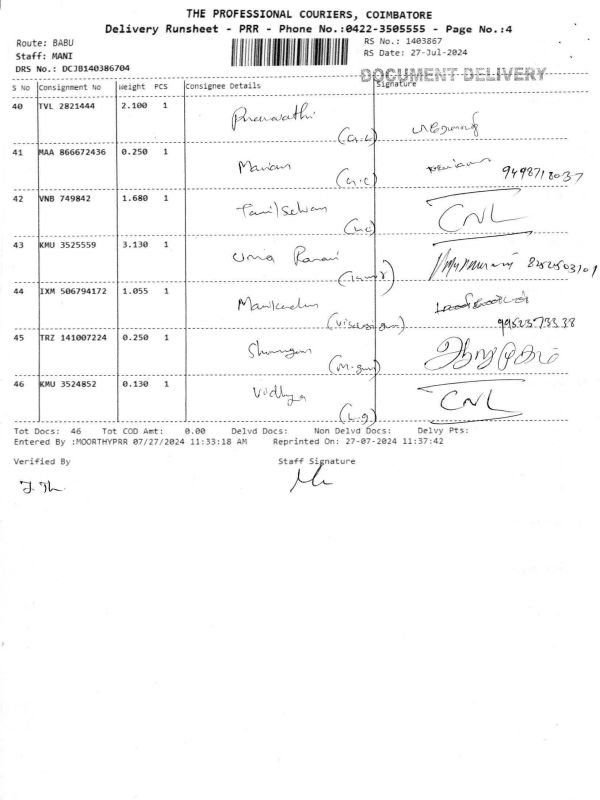 THE PROFESSIONAL COURIERS, COIMBATORE
Delivery Runsheet - PRR - Phone No.:0422-3505555 - Page No.:4
Route: BABU
RS No.: 1403867
Staff: MANI
RS Date: 27-Jul-2024
DRS No.: DCJB140386704
DOCUMENT DELIVERY
S No Consignment No Weight PCS Consignee Details Signature
40 TVL 2821444 2.100 1
(G.C)
41 MAA 866672436 0.250 1 Mariam
(G.C) 9498718037
42 VNB 749842 1.680 1 Tamil Selvan CNL
43 KMU 3525559 3.130 1 Uma Ranani
8252503101
44 IXM 506794172 1.055 1 Manikandan
9952373338
45 TRZ 141007224 0.250 1 ஆறுமுகம்
46 KMU 3524852 0.130 1 Vidhya CNL
(L.g)
Tot Docs: 46 Tot COD Amt: 0.00 Delvd Docs: Non Delvd Docs: Delvy Pts:
Entered By :MOORTHYPRR 07/27/2024 11:33:18 AM Reprinted On: 27-07-2024 11:37:42
Verified By Staff Signature